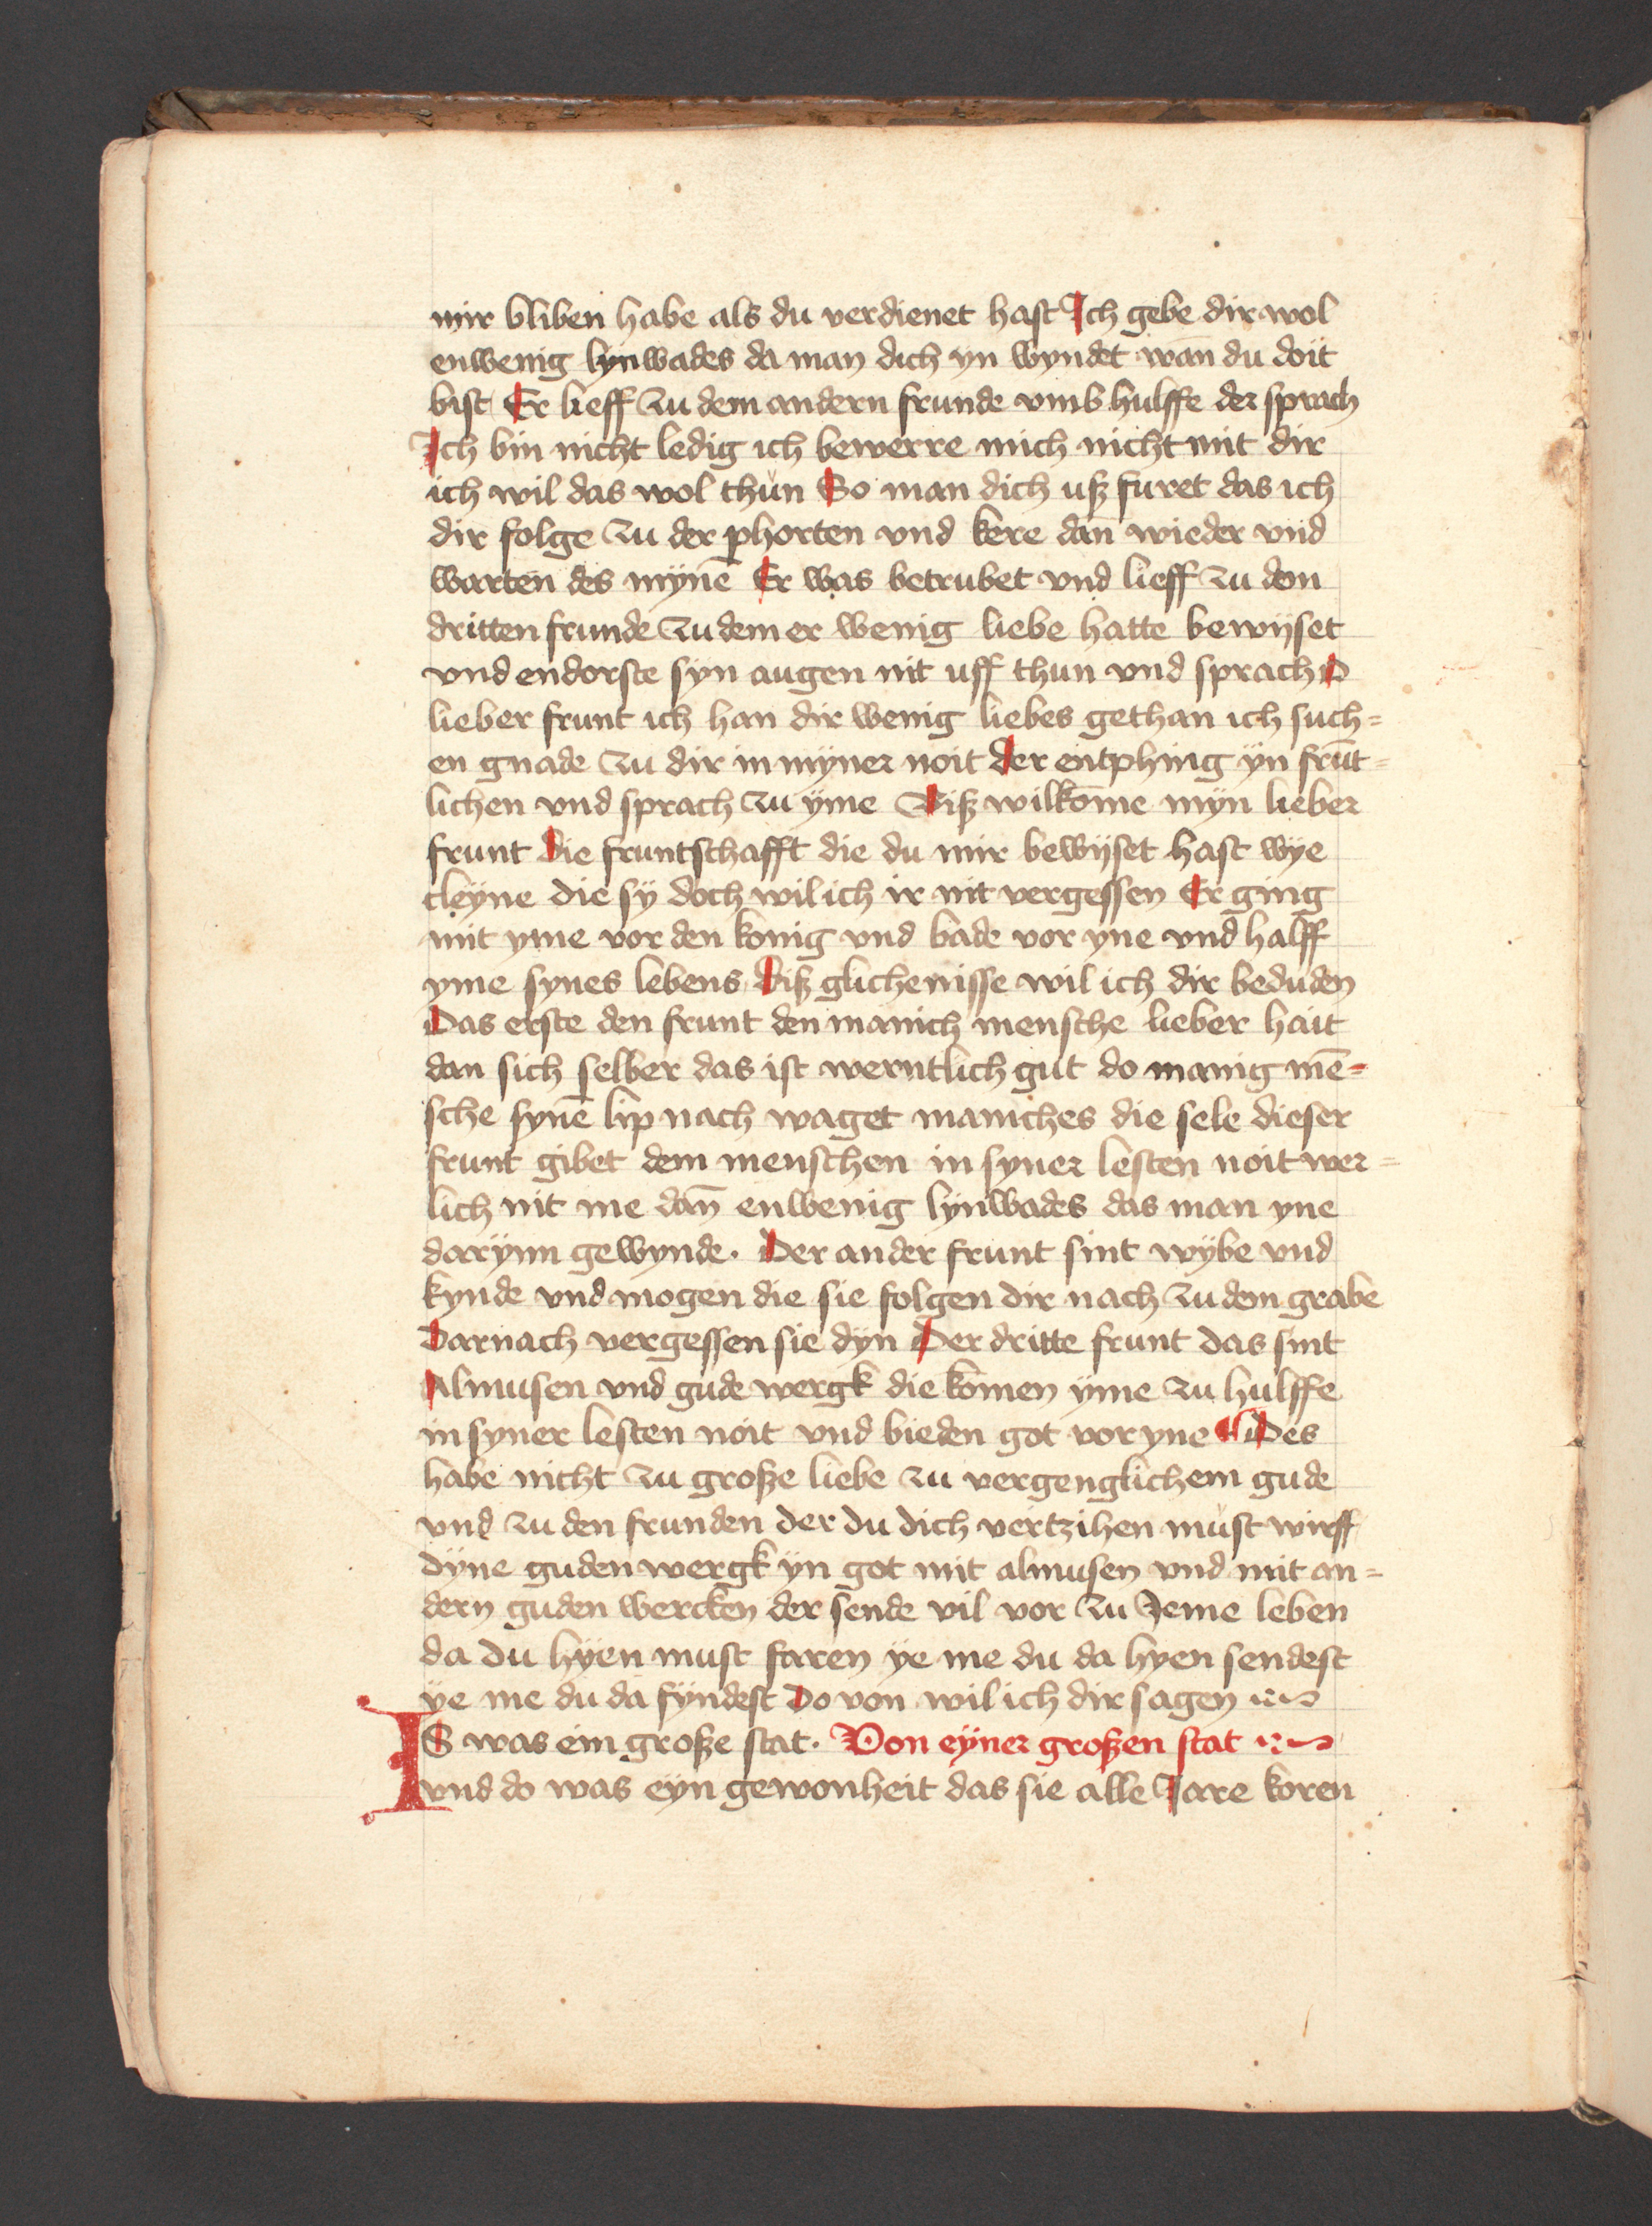 mir bliben habe als du verdienet hast Ich gebe dir wol
enwenig lynwades da man dich yn wyndet wan̄ du doit
bist Er lieff zu dem andern frunde vmb hulffe der sprach
Ich bin nicht ledig ich bewerre mich nicht mit dir
ich wil das wol thun So man dich uß furet das ich
dir folge zu der phorten vnd kere dan̄ wieder vnd
warten des mynē Er was betrubet vnd lieff zu dem
dritten frunde zu dem er wenig liebe hatte bewyset
vnd endorste syn augen nit uff thun vnd sprach O
lieber frunt ich han dir wenig liebes gethan ich such=
en gnade zu dir in myner noit der entphing yn frūt=
lichen vnd sprach zu yme Biß wilkōme myn lieber
frunt die fruntschafft die du mir bewyset hast wye
cleyne die sy doch wil ich ir nit vergessen Er ging
mit yme vor den konig vnd bade vor yne vnd halff
yme synes lebens Diß glichenisse wil ich dir beduden
Das erste den frunt den manich mensche lieber hait
dan sich selber das ist werntlich gut do manig mē=
sche synē lip nach waget maniches die sele dieser
frunt gibet dem menschen in syner lesten noit wer=
lich nit me dan̄ enwenig lynwades das man yne
darynn gewynde. Der ander frunt sint wybe vnd
kynde vnd mogen die sie folgen dir nach zu dem grabe
Darnach vergessen sie dyn Der dritte frunt das sint
Almusen vnd gude wergk die komen yme zu hulffe
in syner lesten noit vnd bieden got vor yne ¶ Des
habe nicht zu große liebe zu vergenglichem gude
vnd zu den frunden der du dich vertzihen must wirff
dyne guden wergk yn got mit almusen vnd mit an=
dern guden wercken der sende vil vor zu Jeme leben
da du hyen must faren ye me du da hyen sendest
ye me du da fyndest Do von wil ich dir sagen
IS was ein große stat. Von eyner großen stat
vnd do was eyn gewonheit das sie alle Jare koren